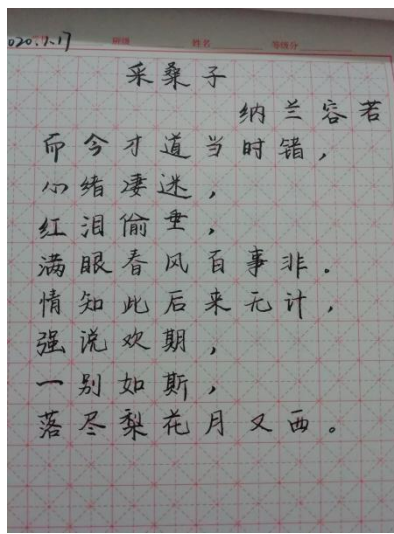 2020.1.17
班级 姓名 等级分
采桑子
纳兰容若
而今才道当时错，
心绪凄迷，
红泪偷垂，
满眼春风百事非。
情知此后来无计，
强说欢期，
一别如斯，
落尽梨花月又西。